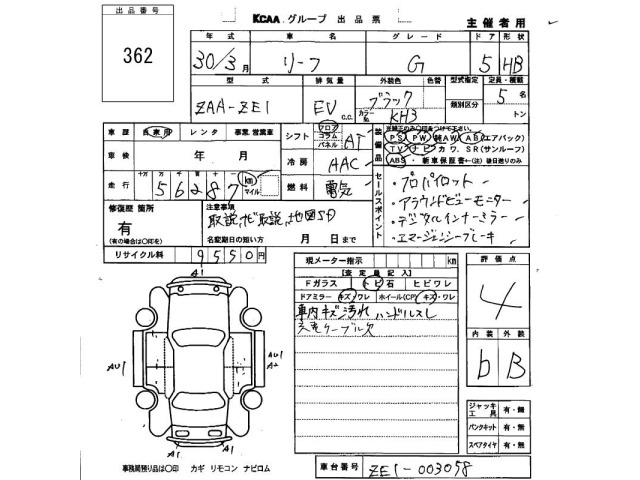 出品番号
362
KCAA グループ 出品票
主催者用
年式 車名 グレード ドア 形状
30/3月 リーフ G 5 HB
型式 排気量 外装色 色替 型式指定 定員・積載
ZAA-ZE1 EV C.C. ブラック カラーNo. KH3 類別区分 5名 トン
車歴 自家用 レンタ 事業、営業車
シフト フロア コラム パネル AT
車検 年 月
冷房 AAC
走行 十万 万 千 百 十 56287 km マイル
燃料 電気
装備品
PS PW 純AW AB(エアバック)
TV ナビ カワ、SR(サンルーフ)
ABS ・新車保証書←(注)後日送りのみ
セールスポイント
・プロパイロット
・アラウンドビューモニター
・デジタルインナーミラー
・エマージェンシーブレーキ
修復歴 箇所
有
(有の場合は〇印を)
注意事項
取説、ナビ取説、地図SD
名変期日の短い方 月 日まで
リサイクル料 9550円
現メーター指示 km
【査定員記入】
Fガラス トビ石 ヒビワレ
ドアミラー キズ ワレ ホイール(CP) キズ・ワレ
車内キズ汚れ ハンドルスレ
充電ケーブル欠
評価点
4
内装 外装
b B
A1
AU1
AU1
A2
A1
A1
ジャッキ工具 有・無
パンクキット 有・無
スペアタイヤ 有・無
事務局預り品は〇印 カギ リモコン ナビロム
車台番号 ZE1-003058